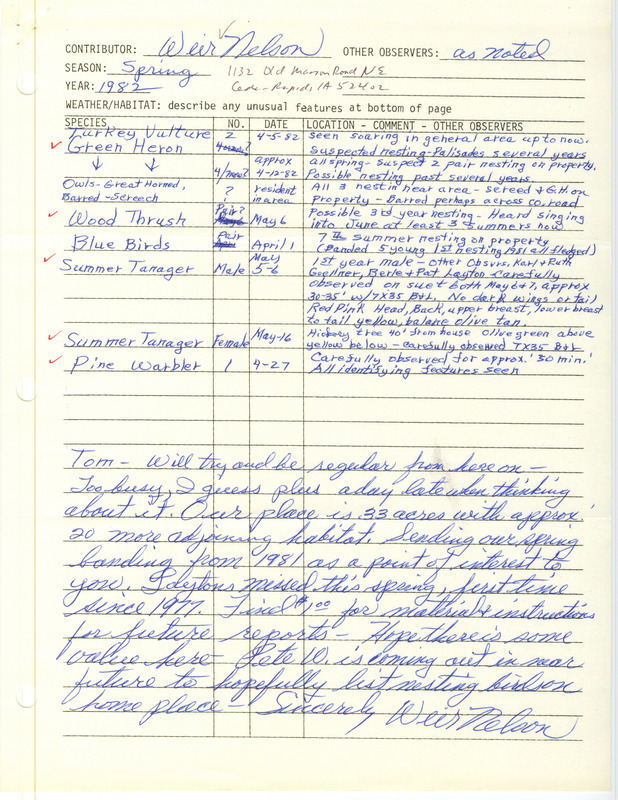 CONTRIBUTOR: Weir Nelson OTHER OBSERVERS: as noted
SEASON: Spring 1132 Old Marion Road NE
YEAR: 1982 Cedar Rapids, IA 52402
WEATHER/HABITAT: describe any unusual features at bottom of page
SPECIES NO. DATE LOCATION - COMMENT - OTHER OBSERVERS
Turkey Vulture 2 4-5-82 Seen soaring in general area up to now.
Green Heron Suspected nesting-Palisades several years
approx all spring-Suspect 2 pair nesting on property.
4/more? 4-12-82 Possible nesting past several years.
Owls-Great Horned, ? resident All 3 nest in near area - Screed & G.H. on
Barred-Screech in area property - Barred perhaps across co. road
Wood Thrush Pair? May 6 Possible 3rd year nesting - Heard singing
into June at least 3 summers now
Blue Birds Pair April 1 7th Summer nesting on property
(Banded 5 young 1st nesting 1981 all fledged)
Summer Tanager Male May 5-6 1st year male - Other Obsvrs, Karl & Ruth
Goellner, Berle & Pat Layton Carefully
observed on suet both May 6 & 7, approx
30-35' w/ 7X35 B&L. No dark wings or tail
Red Pink Head, Back, upper breast, lower breast
to tail yellow, balance olive tan.
Summer Tanager Female May-16 Hickory tree 40' from house olive green above
yellow below - Carefully observed 7X35 B&L
Pine Warbler 1 4-27 Carefully observed for approx. 30 min.
All identifying features seen
Tom - Will try and be regular from here on -
Too busy, I guess plus a day late when thinking
about it. Our place is 33 acres with approx.
20 more adjoining habitat. Sending our spring
banding from 1981 as a point of interest to
you. Laytons missed this spring, first time
since 1977. Find $1.00 for material & instructions
for future reports - Hope there is some
value here Pete W. is coming out in near
future to hopefully list nesting birds on
home place - Sincerely Weir Nelson